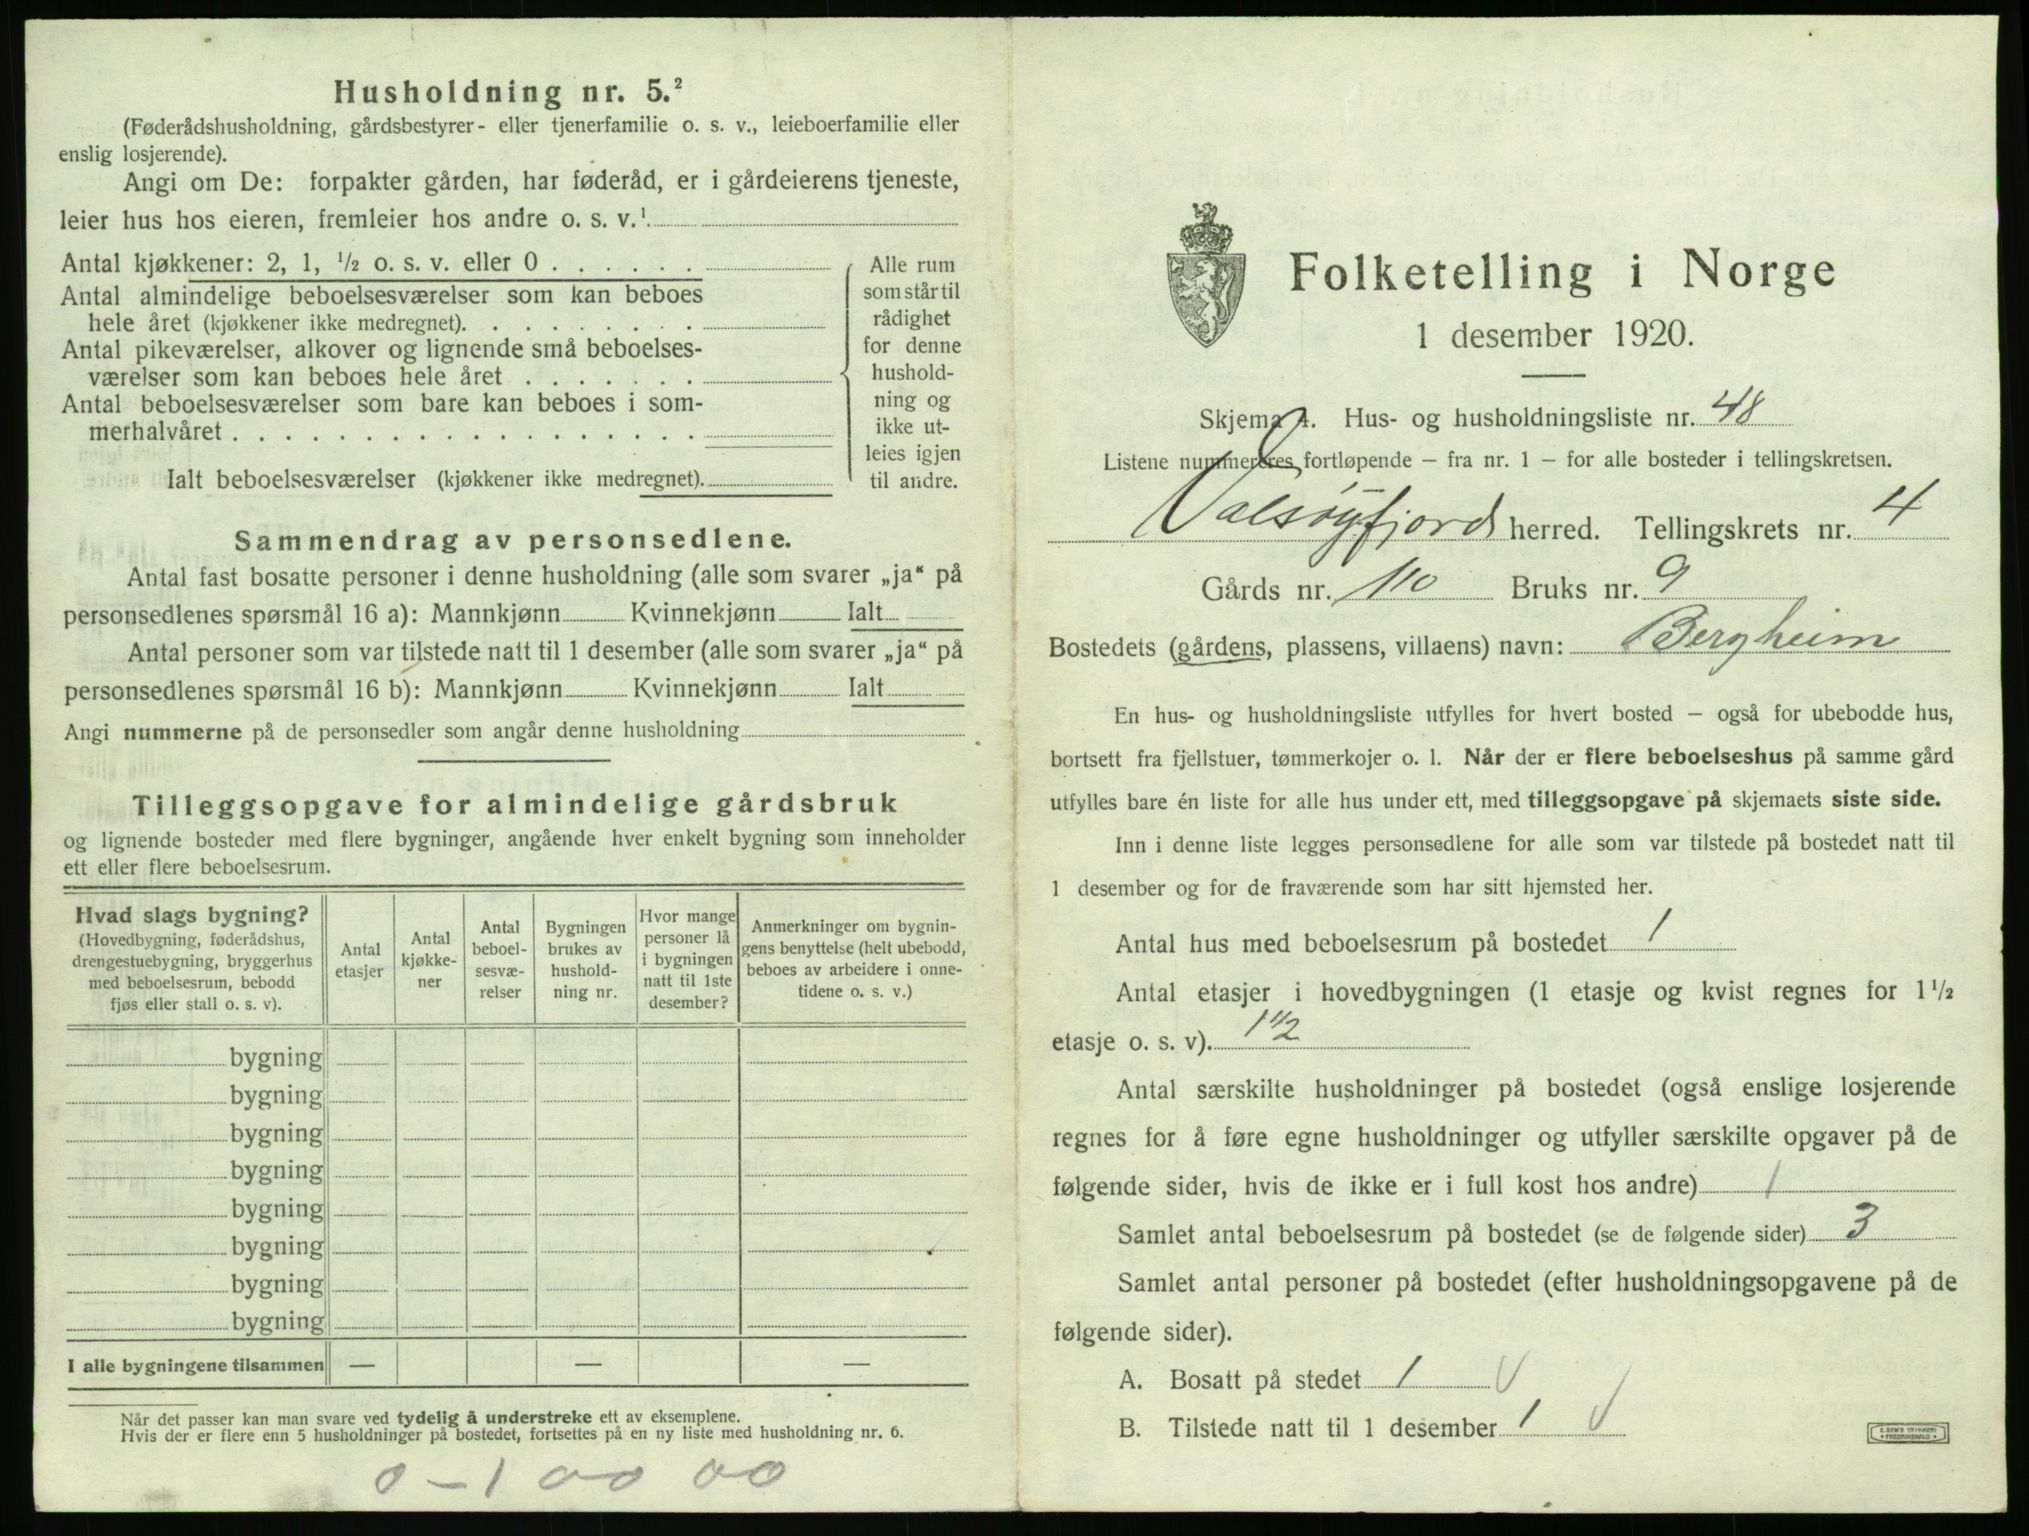 Husholdning nr. 5.²
(Føderådshusholdning, gårdsbestyrer- eller tjenerfamilie o. s. v., leieboerfamilie eller
enslig losjerende).
Angi om De: forpakter gården, har føderåd, er i gårdeierens tjeneste,
leier hus hos eieren, fremleier hos andre o. s. v.¹
Antal kjøkkener: 2, 1, ½ o. s. v. eller 0 . . . . . .
Antal almindelige beboelsesværelser som kan beboes
hele året (kjøkkener ikke medregnet). . . . . . . . .
Antal pikeværelser, alkover og lignende små beboelses-
værelser som kan beboes hele året . . . . . . .
Antal beboelsesværelser som bare kan beboes i som-
merhalvåret . . . . . . . . . . . . . . . . . .
Ialt beboelsesværelser (kjøkkener ikke medregnet).
Alle rum
som står til
rådighet
for denne
hushold-
ning og
ikke ut-
leies igjen
til andre.
Sammendrag av personsedlene.
Antal fast bosatte personer i denne husholdning (alle som svarer „ja“ på
personsedlenes spørsmål 16 a): Mannkjønn Kvinnekjønn Ialt
Antal personer som var tilstede natt til 1 desember (alle som svarer „ja“ på
personsedlenes spørsmål 16 b): Mannkjønn Kvinnekjønn Ialt
Angi nummerne på de personsedler som angår denne husholdning
Tilleggsopgave for almindelige gårdsbruk
og lignende bosteder med flere bygninger, angående hver enkelt bygning som inneholder
ett eller flere beboelsesrum.
Hvad slags bygning?
(Hovedbygning, føderådshus,
drengestuebygning, bryggerhus
med beboelsesrum, bebodd
fjøs eller stall o. s. v).
Antal
etasjer
Antal
kjøkke-
ner
Antal
beboel-
sesvæ-
relser
Bygningen
brukes av
hushold-
ning nr.
Hvor mange
personer lå
i bygningen
natt til 1ste
desember?
Anmerkninger om bygnin-
gens benyttelse (helt ubebodd,
beboes av arbeidere i onne-
tidene o. s. v.)
bygning
bygning
bygning
bygning
bygning
bygning
bygning
bygning
I alle bygningene tilsammen — — —
Når det passer kan man svare ved tydelig å understreke ett av eksemplene.
Hvis der er flere enn 5 husholdninger på bostedet, fortsettes på en ny liste med husholdning nr. 6.
0 – 1 00 00
Folketelling i Norge
1 desember 1920.
Skjema 4. Hus- og husholdningsliste nr. 48
Listene nummereres fortløpende – fra nr. 1 – for alle bosteder i tellingskretsen.
Valsøyfjord herred. Tellingskrets nr. 4
Gårds nr. 110 Bruks nr. 9
Bostedets (gårdens, plassens, villaens) navn: Bergheim
En hus- og husholdningsliste utfylles for hvert bosted – også for ubebodde hus,
bortsett fra fjellstuer, tømmerkojer o. l. Når der er flere beboelseshus på samme gård
utfylles bare én liste for alle hus under ett, med tilleggsopgave på skjemaets siste side.
Inn i denne liste legges personsedlene for alle som var tilstede på bostedet natt til
1 desember og for de fraværende som har sitt hjemsted her.
Antal hus med beboelsesrum på bostedet 1
Antal etasjer i hovedbygningen (1 etasje og kvist regnes for 1½
etasje o. s. v). 1½
Antal særskilte husholdninger på bostedet (også enslige losjerende
regnes for å føre egne husholdninger og utfyller særskilte opgaver på de
følgende sider, hvis de ikke er i full kost hos andre) 1
Samlet antal beboelsesrum på bostedet (se de følgende sider) 3
Samlet antal personer på bostedet (efter husholdningsopgavene på de
følgende sider).
A. Bosatt på stedet 1 V
B. Tilstede natt til 1 desember 1 V
E. SEM'S TRYKKERI
FREDRIKSHALD